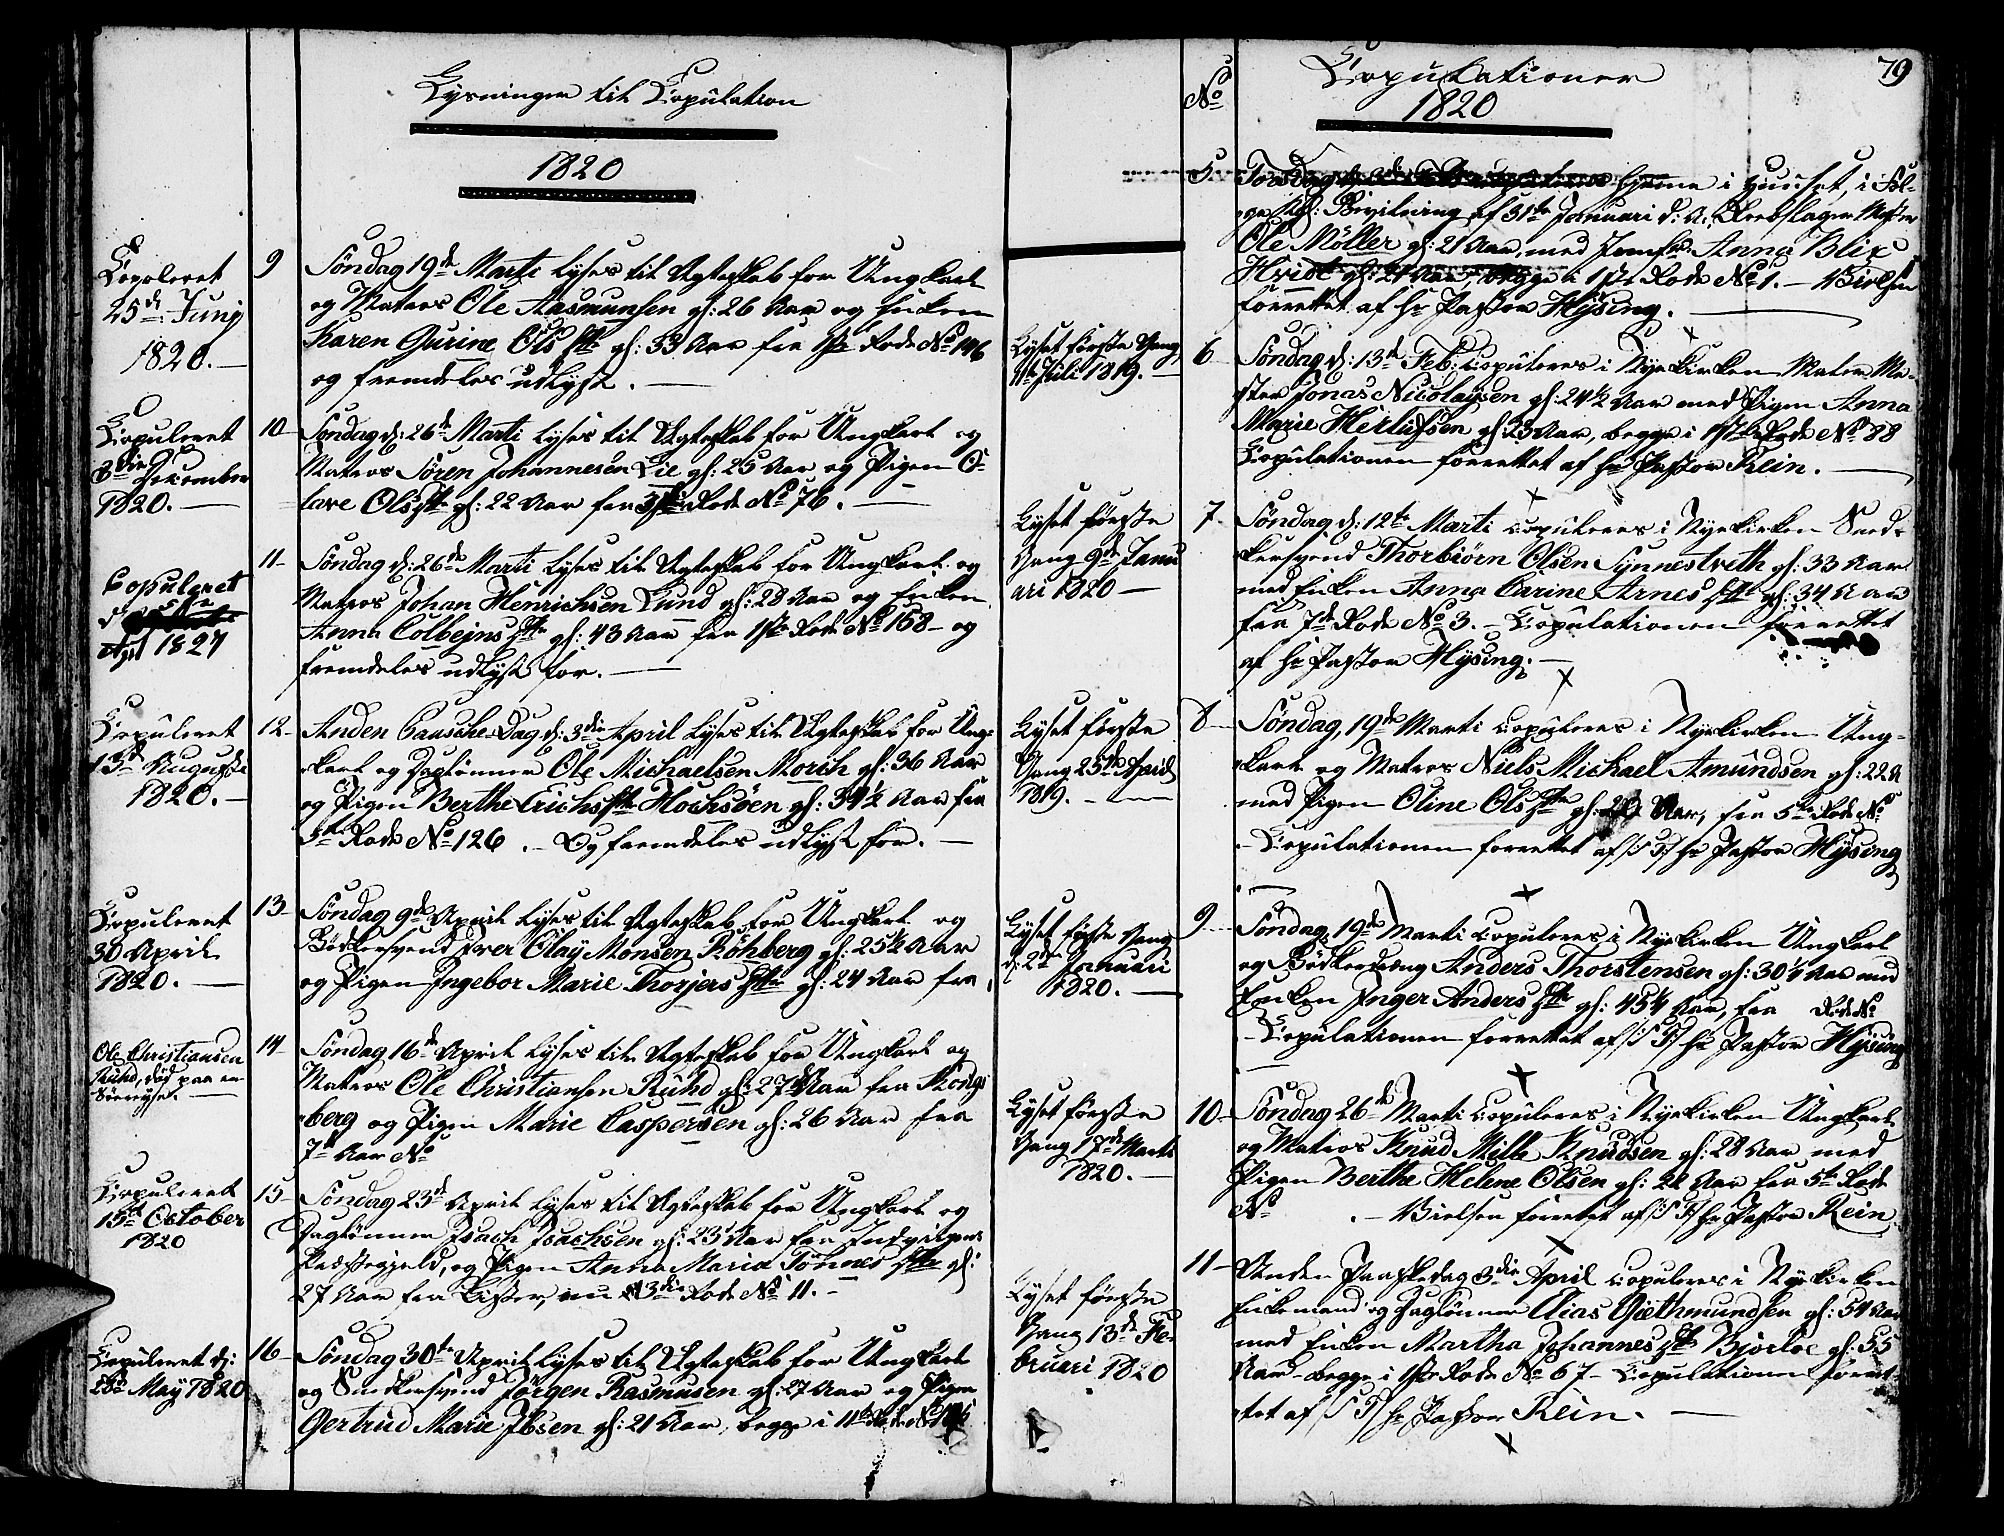 Lysninger til Copulation
1820
Copuleret
25de Juny
1820.
9
Søndag 19de Marti lyses til Ægteskab for Ungkarl
og Matros Ole Aasmundsen gl: 26 Aar og Enken
Karen Gurine Ols Dtr gl: 33 Aar fra 1ste Rode No 146
og fremdeles udlyst.
Copuleret
3die December
1820.
10
Søndag d: 26de Marti lyses til Ægteskab for Ungkarl og
Matros Søren Johannesen Lie gl: 25 Aar og Pigen O-
lave Olsdtr gl: 22 Aar fra Rode No 76.
Copuleret
1827
11
Søndag d: 26de Marti lyses til Ægteskab for Ungkarl og
Matros Johan Henrichsen Lund gl: 28 Aar og Enken
Anna Colbejns Dtr gl: 43 Aar fra 1ste Rode No 158 og
fremdeles udlyst for.
Copuleret
13de Augusti
1820.
12
Anden Paasche Dag d: 3die April lyses til Ægteskab for Ung-
karl og Daglønner Ole Michaelsen Morich gl: 36 Aar
og Pigen Berthe Erichsdtr Hochsøen gl: 34½ Aar fra
5te Rode No 126. Og fremdeles udlyst for.
Copuleret
30 April
1820.
13
Søndag 9de April lyses til Ægteskab for Ungkarl og
Bødkersvend Iver Olay Monsen Røhberg gl: 25½ Aar
og Pigen Ingebor Marie Thorjers Dtr gl: 24 Aar fra
Ole Christiansen
Rund, død paa en
Søereyse.
14
Søndag 16de April lyses til Ægteskab for Ungkarl og
Matros Ole Christiansen Rund gl: 27 Aar fra Kongs
berg og Pigen Marie Caspersen gl: 26 Aar fra
7de Aar No
Copuleret
15de October
1820
15
Søndag 23de April lyses til Ægteskab for Ungkarl og
Daglønner Isach Isachsen gl: 23 Aar fra Indvigens
Præstegjeld, og Pigen Anna Maria Tønnes Dtr gl:
27 Aar fra Lister, nu 3die Rode No 11.
Copuleret d:
28de May 1820
16
Søndag 30te April lyses til Ægteskab for Ungkarl
og Snedkersvend Jørgen Rasmusen gl: 27 Aar og Pigen
Gertrud Marie Ibsen gl: 21 Aar, begge i 11te Rode No
79
No
Copulationer
1820
5
Torsdag hjemme i Huuset, i Føl-
ge Kgl: Bevilning af 31te Januari d: A. Reebslager Mester
Ole Möller gl: 21 Aar, med Jomfr: Anna Blix
Hvidt gl: 21 Aar, begge i 1ste Rode No 1. Vielsen
forrettet af Hr Pastor Hysing.
Lyset første Gang
11te Juli 1819.
6
Søndag d: 13de Feb: copuleres i Nyekirken Maler Me-
ster Jonas Nicolaysen gl: 24½ Aar med Pigen Anna
Marie Herlufsen gl: 23 Aar, begge i 17de Rode No 88
Copulationen forrettet af Hr Pastor Rein.
Lyset første
Gang 9de Janu
ari 1820
7
Søndag d: 12te Marti copuleres i Nyekirken Sned-
kersvend Thorbiørn Olsen Synnestveth gl: 33 Aar
med Enken Anna Carine Arnes Dtr gl: 34 Aar
fra 7de Rode No 3. Copulationen forrettet
af Hr Pastor Hysing.
Lyset første
Gang 25de April
1819.
8
Søndag, 19de Marti copuleres i Nyekirken Ung-
karl og Matros Niels Michael Amundsen gl: 22 A
med Pigen Oline Olsdtr gl: Aar, fra 5te Rode No
Copulationen forrettet af S. T. Hr Pastor Hysing
Lyset første Gang
d: 2den Januari
1820.
9
Søndag, 19de Marti copuleres i Nyekirken Ungkarl
og Bødkerdreng Anders Thorstensen gl: 30¼ Aar med
Enken Inger Anders Dtr gl: 45¼ Aar, fra Rode No
Copulationen forrettet af S. T. Hr Pastor Hysing
Lyset første
Gang 17de Marti
1820.
10
Søndag 26de Marti copuleres i Nyekirken Ungkarl
og Matros Knud Mille Knudsen gl: 28 Aar med
Pigen Berthe Helene Olsen gl: 22 Aar fra 5te Rode
No . Vielsen forrettet af S. T. Hr Pastor Rein
Lyset første
Gang 13de Fe-
bruari 1820
11
Anden Paaskedag 3die April copuleres i Nyekirken
Enkemand og Daglønner Elias Giethmundsen gl: 54 Aar
med Enken Martha Johannesdtr Bjorløe gl: 55
Aar begge i 1ste Rode No 67 Copulationen forret
tet af S. T. Hr Pastor Rein.